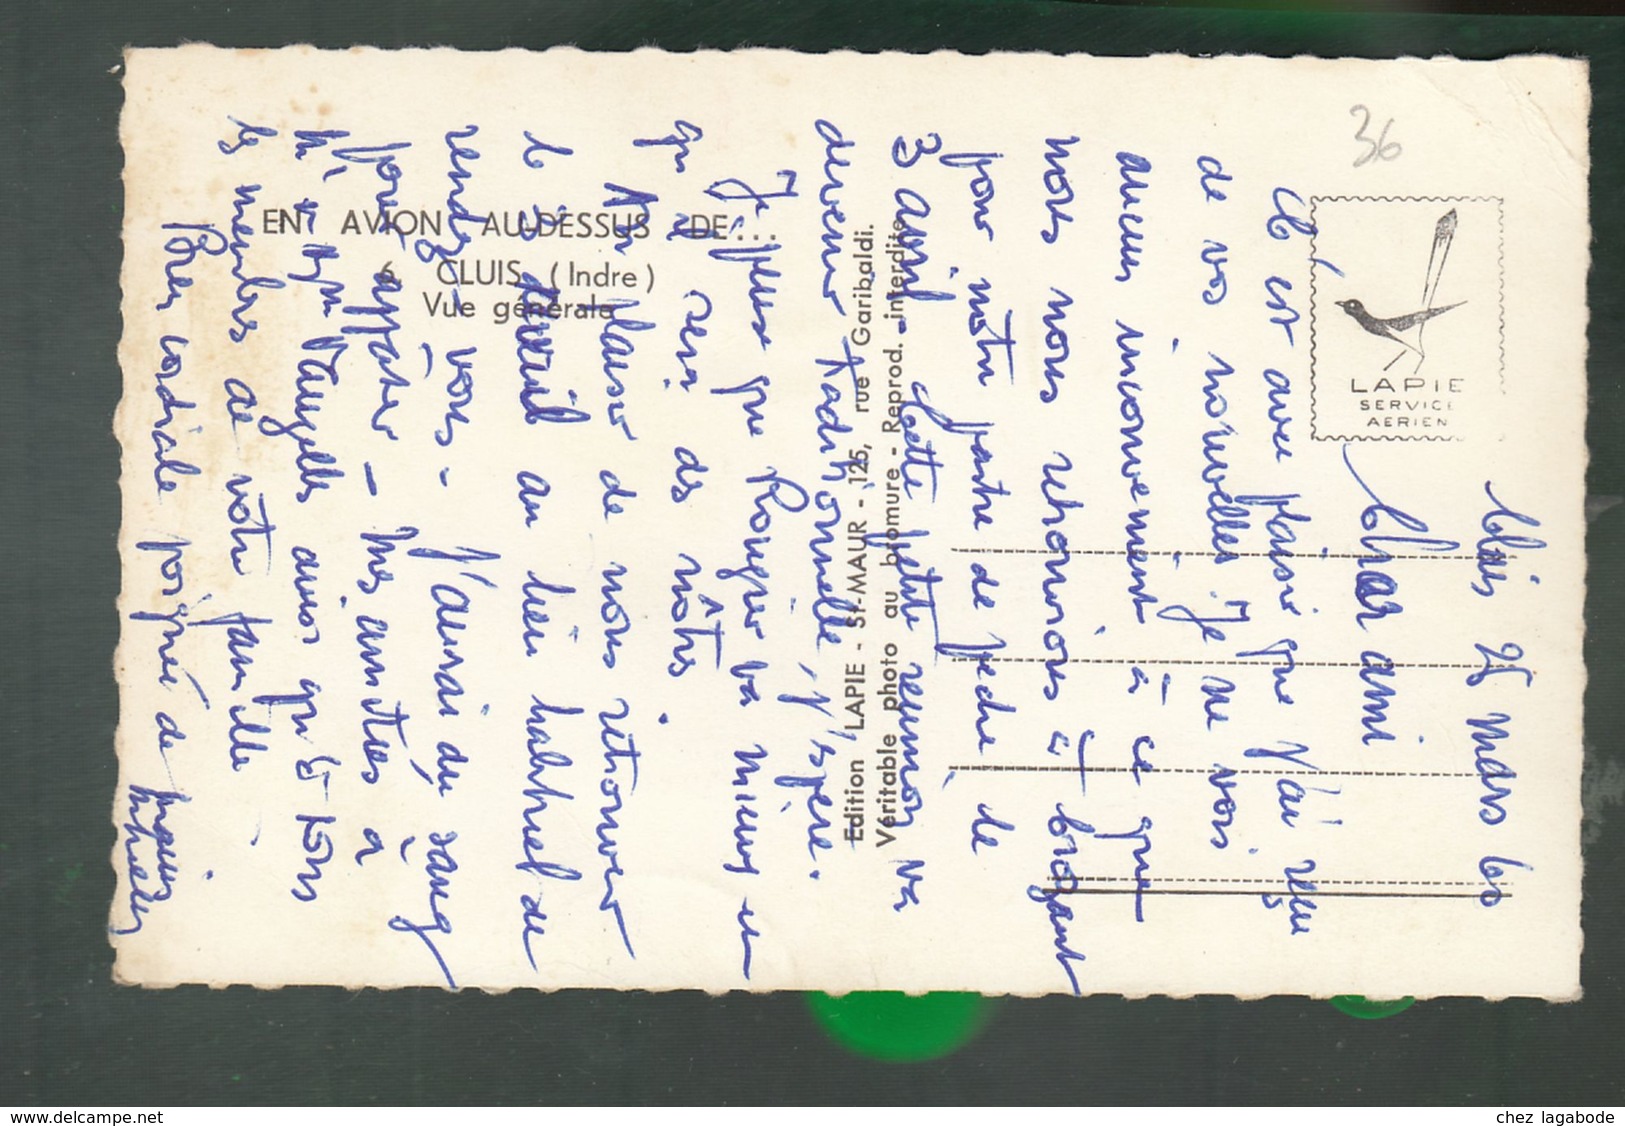 36
EN AVION AU-DESSUS DE...
6 CLUIS (Indre)
Vue générale
Edition LAPIE - St-MAUR - 125, rue Garibaldi.
Véritable photo au bromure - Reprod. interdite
LAPIE
SERVICE
AERIEN
Cluis 25 Mars 60
Cher ami
C'est avec plaisir que j'ai reçu
de vos nouvelles. Je ne vois
aucun inconvénient à ce que
nous nous retrouvions à Crozant
pour notre partie de pêche le
3 avril - Cette petite réunion va
devenir traditionnelle, j'espère.
Je pense que Rougier va mieux et
qu'il sera des nôtres.
Au plaisir de nous retrouver
le 3 avril au lieu habituel de
rendez-vous - J'aurai du sang
pour appâter - Mes amitiés à
Mr et Mme ainsi qu'à tous
les membres de votre famille.
Bien cordiale poignée de mains